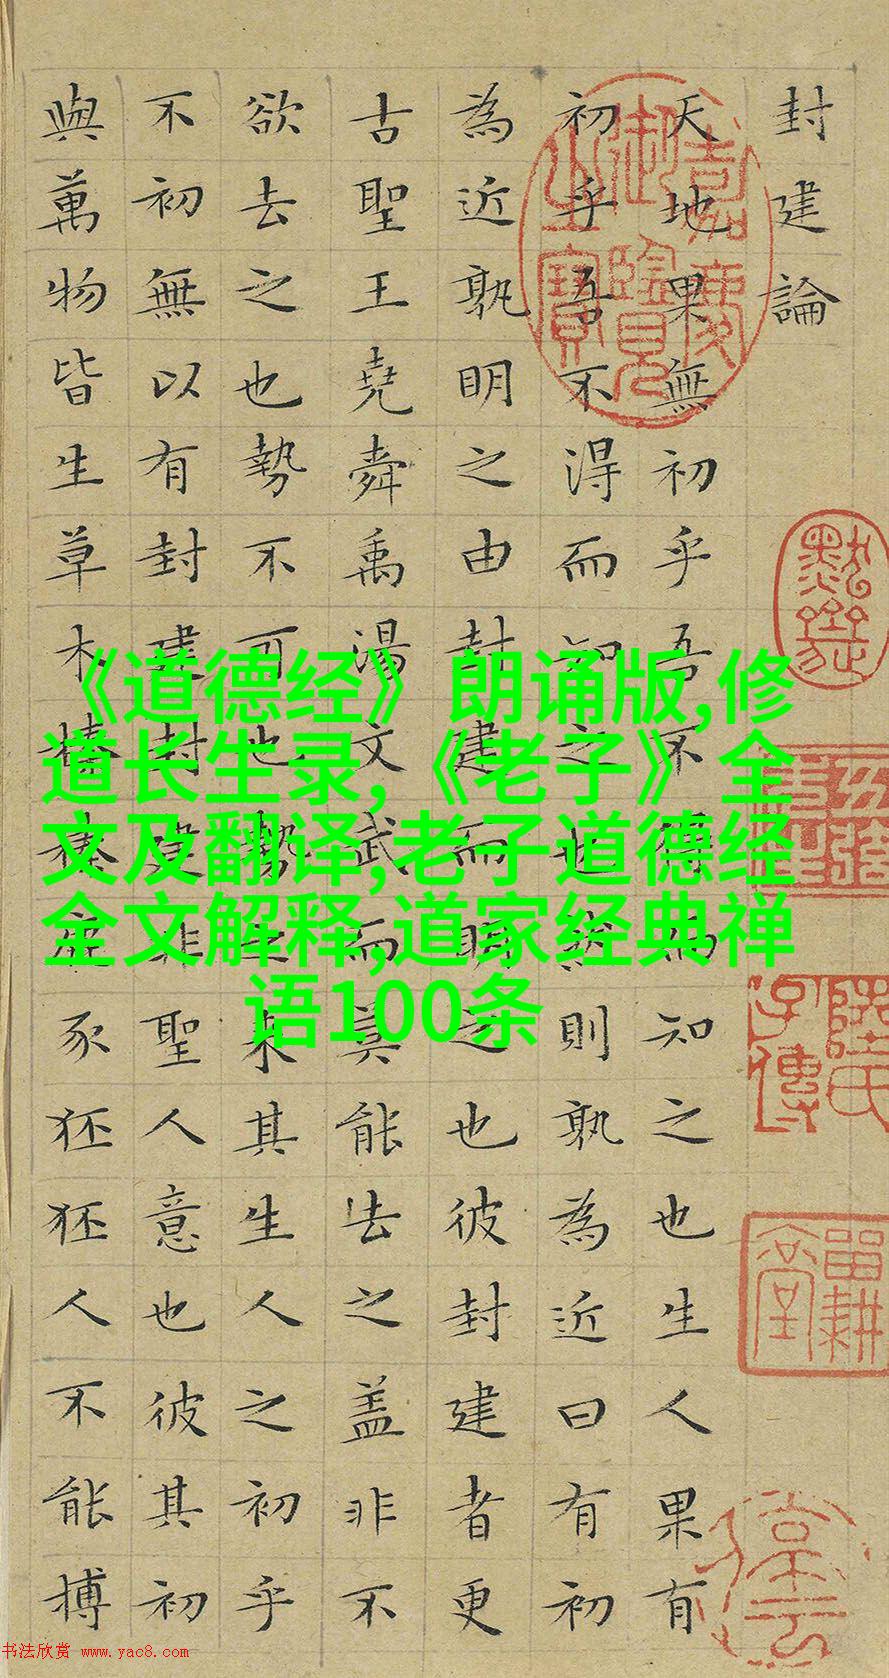 封建論
天地果無初乎吾不得而知之也生人果有
初乎吾不得而知之也然則孰為近曰有初
為近孰明之由封建而明之也彼封建者更
古聖王堯舜禹湯文武而莫能去之盖非不
欲去之也勢不可也勢之来其生人之初乎
不初無以有封建封建非聖人意也彼其初
與萬物皆生草木榛榛鹿豕狉狉人不能搏
嘉慶
御覽
之寶
留耕
堂
《道德经》朗诵版,修
道长生录,《老子》全
文及翻译,老子道德经
全文解释,道家经典禅
语100条
书法欣赏 www.yac8.com